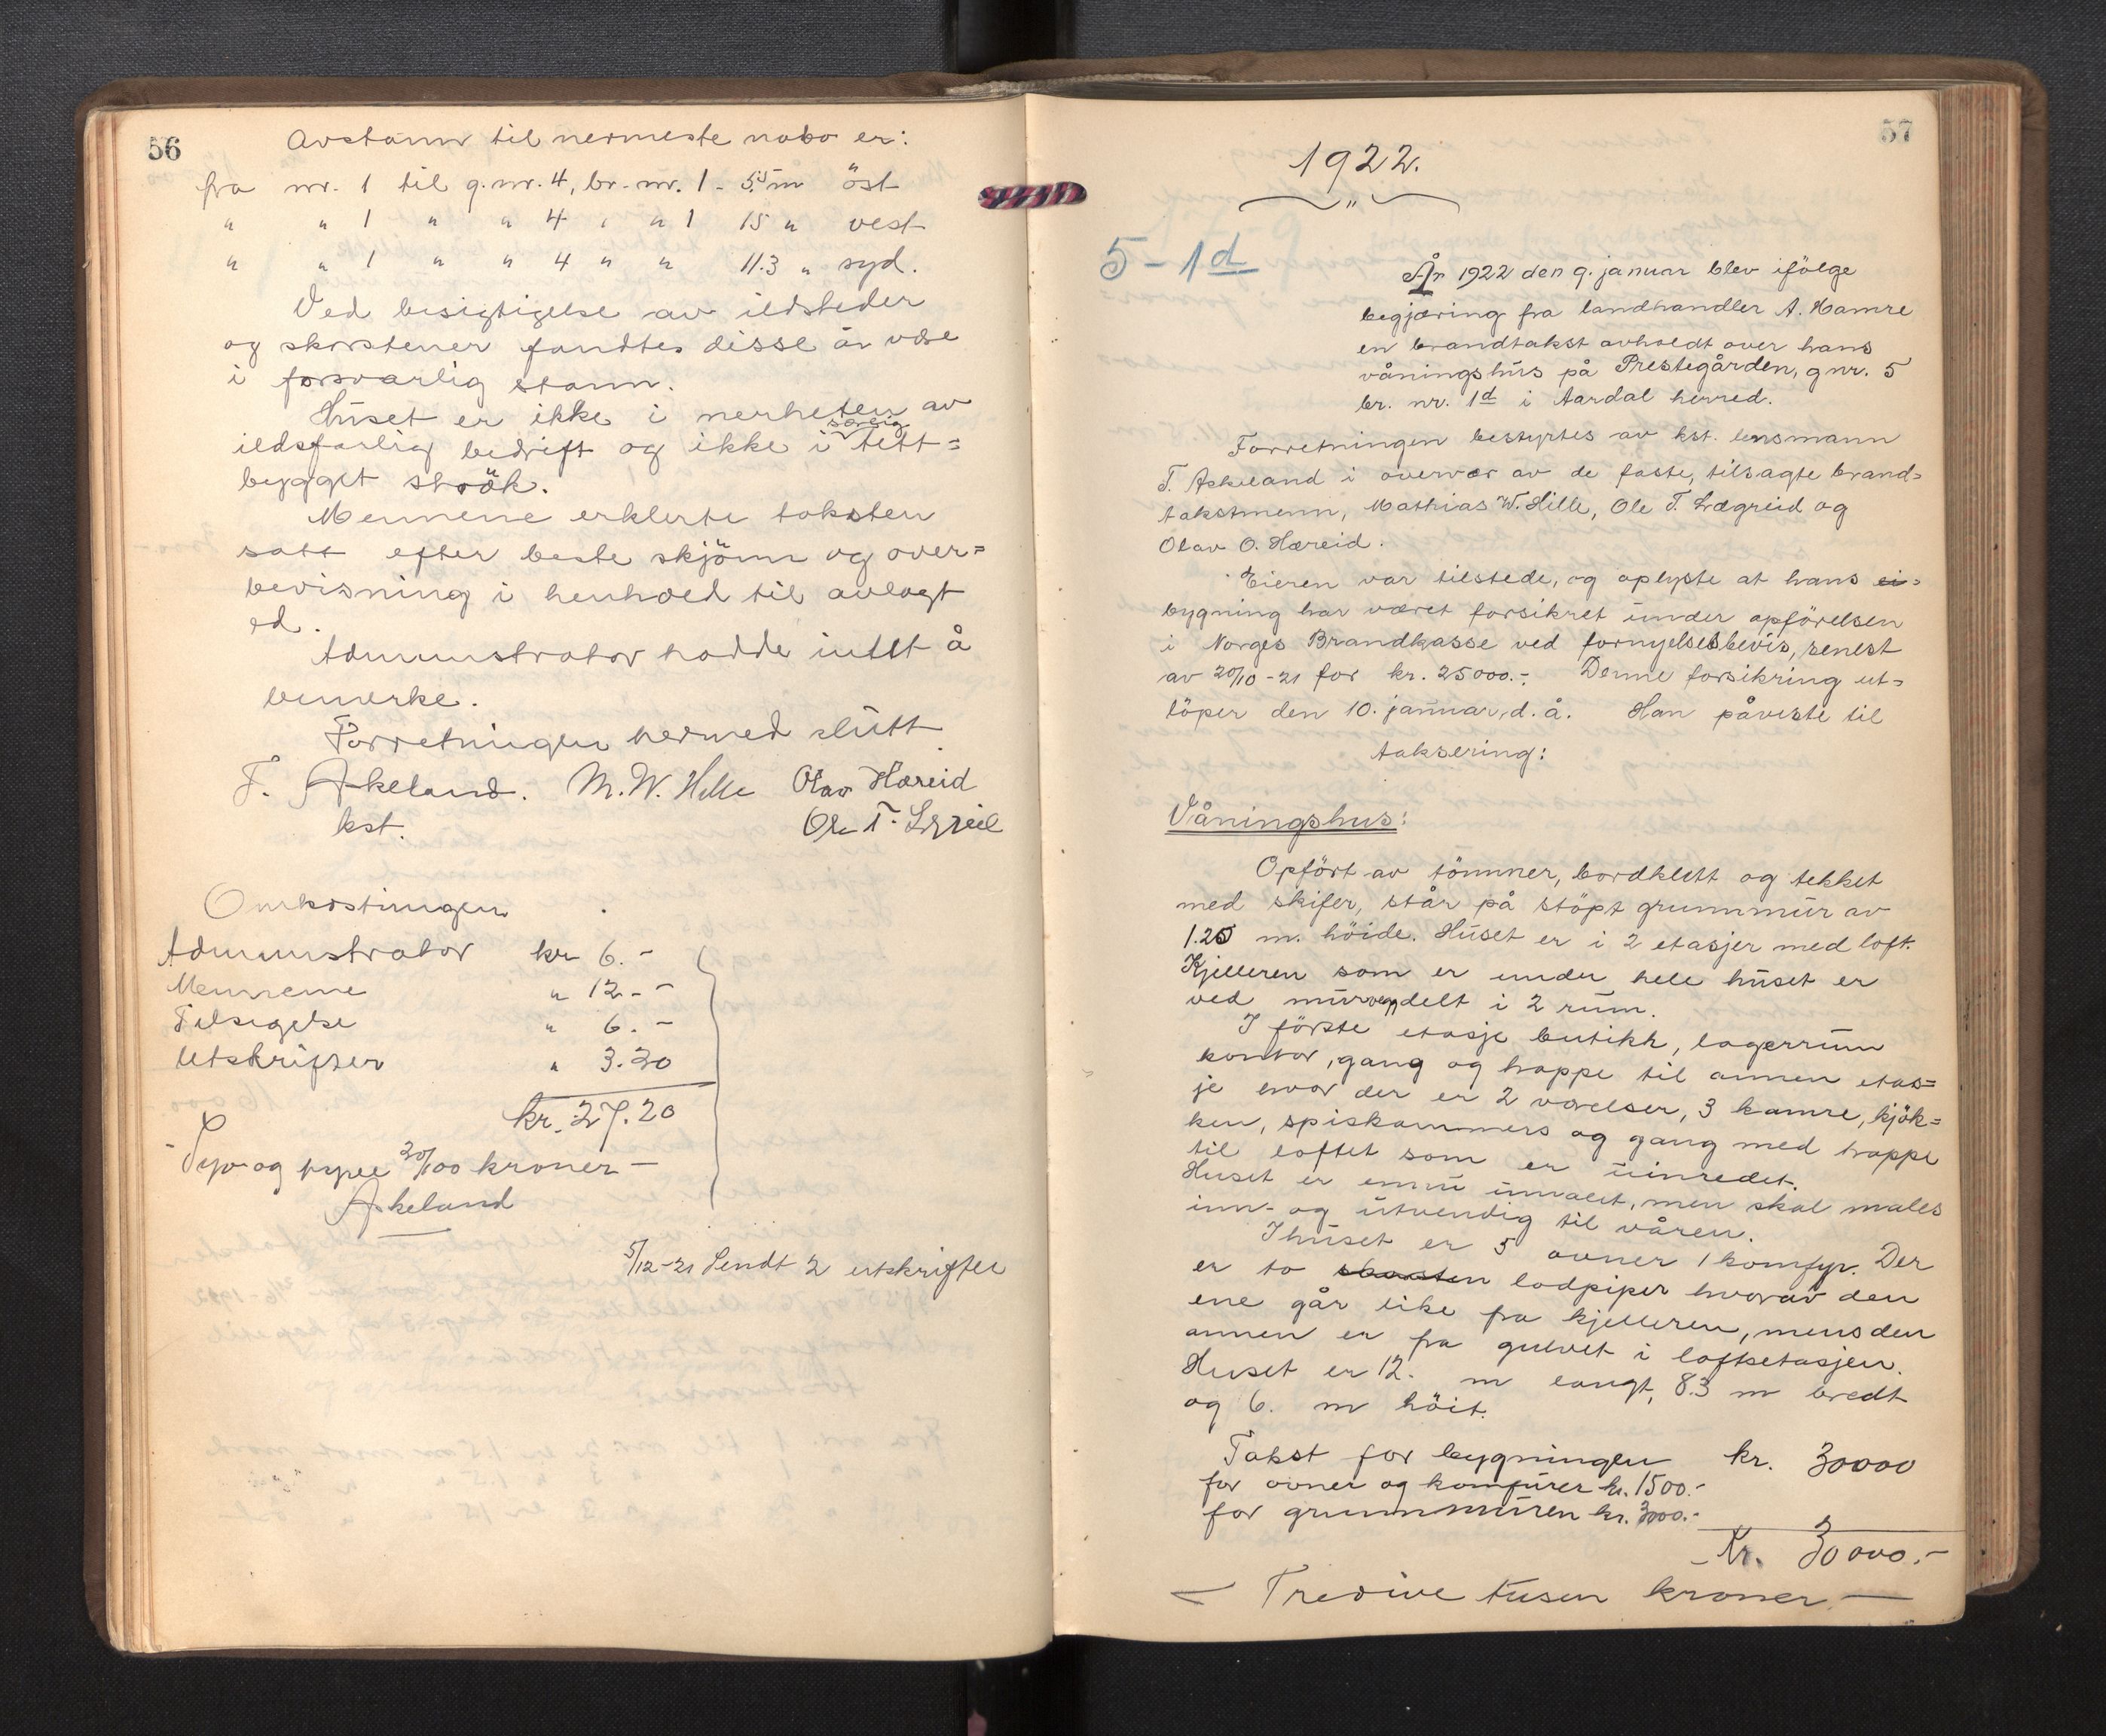 56
Avstann til nermeste nabo er:
fra nr. 1 til g.nr. 4, br. nr. 1 - 5.5 m öst
" " 1 " " 4 " " 1 15 " vest
" " 1 " " 4 " " 11.3 " syd.
Ved besigtigelse av ildsteder
og skorstener fandtes disse å være
i forsvarlig stann.
Huset er ikke i nerheten av
særlig
ildsfarlig bedrift og ikke i tett=
bygget strök.
Mennene erklerte taksten
satt efter beste skjönn og over=
bevisning i henhold til avlagt
ed.
Administrator hadde intet å
bemerke.
Forretningen hermed slutt
T. Askeland. M. W. Hille Olav Hæreid
kst. Ole T. Lægreid
Omkostningen
Administrator kr 6.-
Mennene " 12.-
Tilsigelse " 6.-
Utskrifter " 3.20
kr. 27.20
- Syv og tyve 20/100 kroner -
Askeland
5/12-21 Sendt 2 utskrifter
57
1922.
"
5 - 1d
År 1922 den 9. januar blev ifölge
begjæring fra landhandler A. Hamre
en brandtakst avholdt over hans
våningshus på Prestegården, gnr. 5
br. nr. 1d i Aardal herred.
Forretningen bestyrtes av kst. lensmann
T. Askeland i overvær av de faste, tilsagte brand=
takstmenn, Mathias W. Hille, Ole T. Lægreid og
Olav O. Hæreid.
Eieren var tilstede, og oplyste at hans ei=
bygning har været forsikret under opförelsen
i Norges Brandkasse ved fornyelsesbevis, senest
av 20/10-21 for kr. 25000.-. Denne forsikring ut=
löper den 10. januar, d. å. Han påviste til
taksering:
Våningshus:
Opfört av tömmer, bordklett og tekket
med skifer, står på stöpt grunnmur av
1.25 m. höide. Huset er i 2 etasjer med loft.
Kjelleren som er under hele huset er
ved murvegg delt i 2 rum.
I förste etasje butikk, lagerrum
kontor, gang og trappe til annen etas=
je hvor der er 2 værelser, 3 kamre, kjök=
ken, spiskammers og gang med trappe
til loftet som er uinredet.
Huset er ennu umalet, men skal males
inn- og utvendig til våren.
I huset er 5 ovner 1 komfyr. Der
er to skorsten lodpiper hvorav den
ene går like fra kjelleren, mens den
annen er fra gulvet i loftsetasjen.
Huset er 12. m langt, 8.3 m bredt
og 6. m höit.
Takst for bygningen kr. 30000
for ovner og komfürer kr. 1500.-
for grunnmüren kr. 3000.-
Kr. 30000.-
- Tredive tusen kroner -